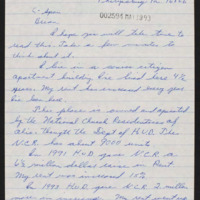 002594 MAY 1993
C-Span
Brian,
I hope you will take time to
read this. Take a few minutes to
think about it.
I live in a senior citizen
apartment building. I've lived here 4½
years. My rent has increased every year
I've been here.
This place is owned and operated
by the National Church Residences of
Ohio. through the Dept of H.U.D. The
N.C.R. has about 9000 units
In 1991 H.U.D. gave N.C.R. a
6½ million dollar
My rent was increased 15%
In 1992 H.U.D. gave N.C.R. 2 million